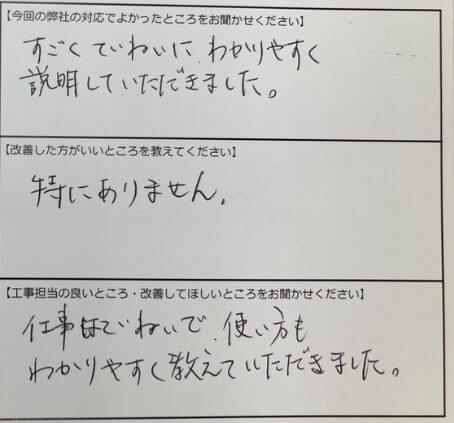 【今回の弊社の対応でよかったところをお聞かせください】
すごくていねいに、わかりやすく
説明していただきました。
【改善した方がいいところを教えてください】
特にありません。
【工事担当の良いところ・改善してほしいところをお聞かせください】
仕事はていねいで、使い方も
わかりやすく教えていただきました。